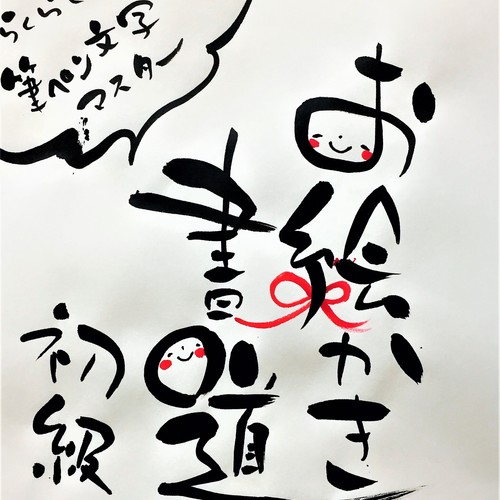 らくらく
筆ペン文字
マスター
お絵かき
書道
初級